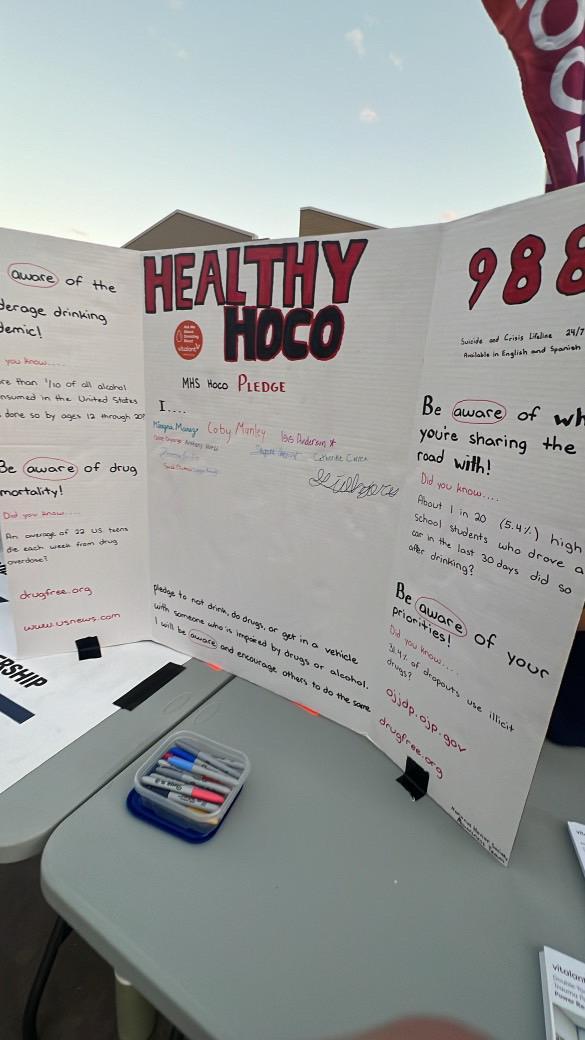 aware of the
derage drinking
demic!
you know....
re than 1/10 of all alcohol
nsumed in the United States
done so by ages 12 through 20?
Be aware of drug
mortality!
Did you know....
An average of 22 U.S. teens
die each week from drug
overdose?
drugfree.org
www.usnews.com
ERSHIP
HEALTHY
HOCO
Ask Me
About
Donating
Blood
vitalant
MHS HOCO PLEDGE
I....
Coby Manley
pledge to not drink, do drugs, or get in a vehicle
with someone who is impaired by drugs or alcohol.
I will be aware and encourage others to do the same
988
Suicide and Crisis Lifeline 24/7
Available in English and Spanish
Be aware of wh
you're sharing the
road with!
Did you know....
About 1 in 20 (5.4%) high
school students who drove a
car in the last 30 days did so
after drinking?
Be aware of your
priorities!
Did you know....
31.4% of dropouts use illicit
drugs?
ojjdp.ojp.gov
drugfree.org
National Honor Society
vitalant
Power Re